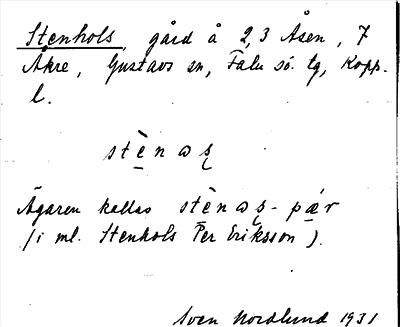 Stenhols, gård å 2,3 Åsen, 7
Åkre, Gustavs sn, Falu sö. tg, Kopp.
l.
stè̱nɷʂ
Ägaren kallas stè̱nɷʂ-pǽ̱r
(i ml. Stenhols Per Eriksson).
Sven Nordlund 1931